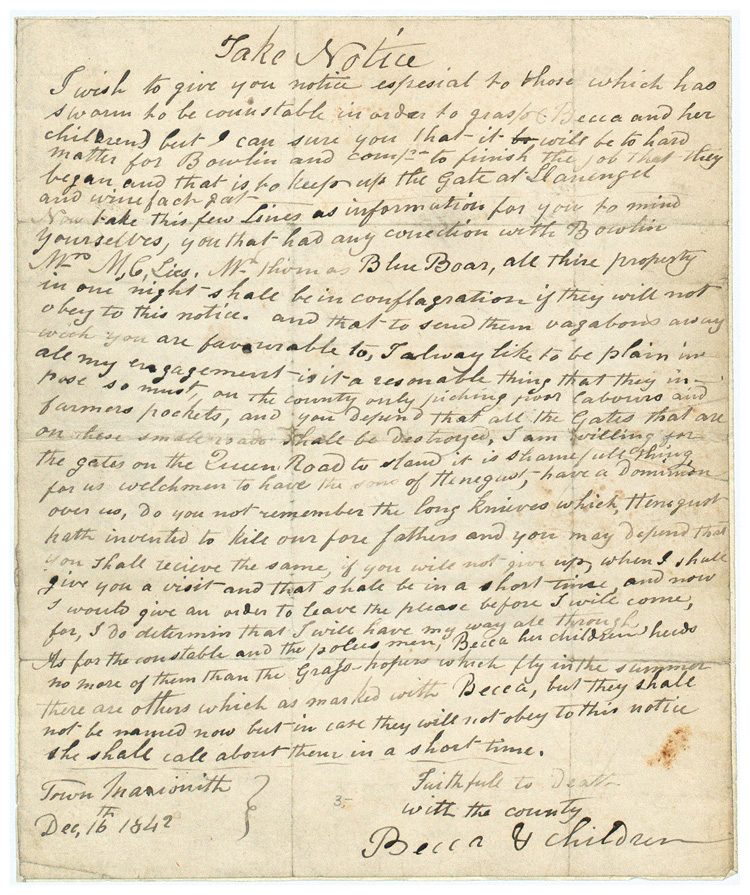 Take Notice
I wish to give you notice espesial to those which has
sworn to be counstable in order to grasp (Becca and her
children) but I can sure you that it be will be to hard
matter for Bowlin and comp^y to finish the job that they
began and that is to keep up the Gate at Llanengel
and wine fact
Now take this few Lines as information for you to mind
yourselves, you that had any conection with Bowlin
Mrs M,C, Lies. Mr thomas Blue Boar, all thire property
in one night shall be in conflagration if they will not
obey to this notice. and that to send them vagabons away
wich you are favourable to, I alway like to be plain in
all my engagement is it a resonable thing that they in-
pose so must, on the county only picking poor Labours and
farmers pockets, and you depend that all the Gates that are
on these small roads shall be destroyed, I am willing for
the gates on the Queen Road to stand it is shamefull thing
for us welchmen to have the sons of Henegust, have a Dominion
over us, do you not remember the long knieves which Henegust
hath invented to kill our fore fathers and you may depend that
you shall recieve the same, if you will not give up, when I shall
give you a visit and that shall be in a short time and now
I would give an order to leave the please before I will come,
for, I do determin that I will have my way all through
As for the constable and the poleesmen, Becca her children heeds
no more of them than the Grass hopers which fly in the summer
there are others which as marked with Becca, but they shall
not be named now but in case they will not obey to this notice
she shall call about them in a short time.
Town
Dec, 16th 1842
3
Faithfull to Death
with the county
Becca & children